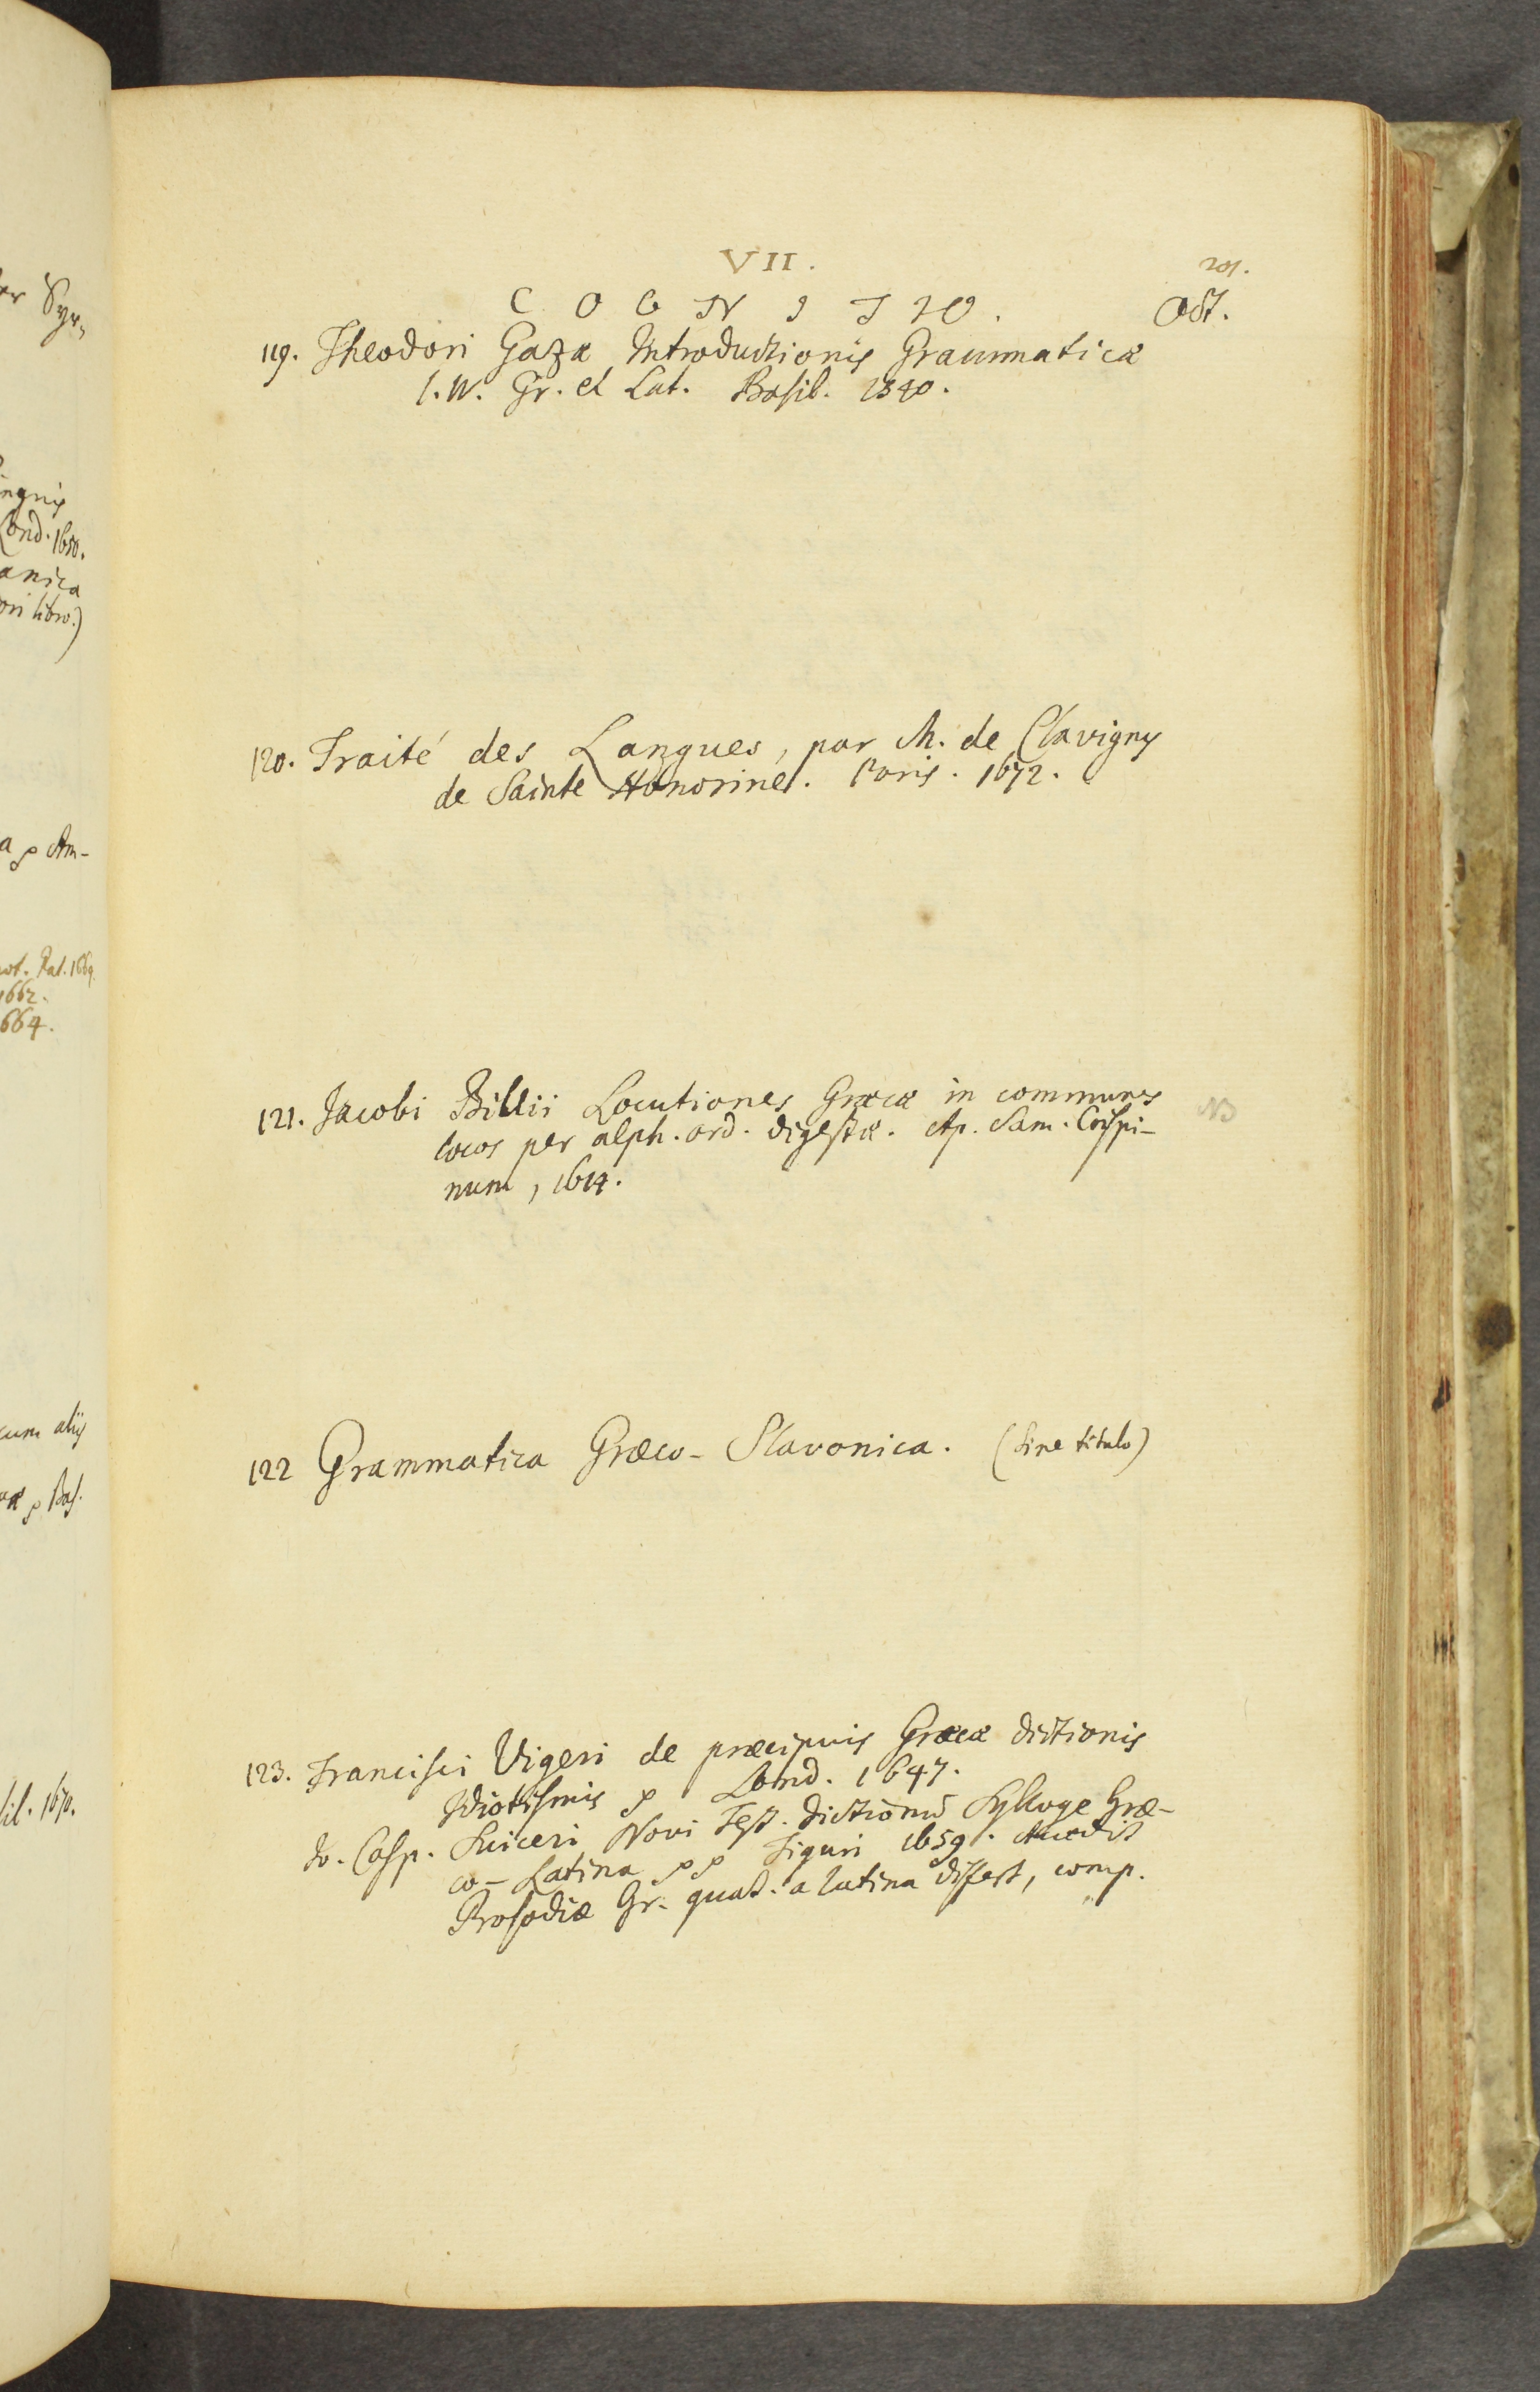 VII.
201.
COGNITIO.
Oct.
119. Theodori Gazæ Introductionis Grammaticæ
l. IV. Gr. et Lat. Basil. 1540.
120. Traité des Langues, par M. de Clavigny
de Sainte Honorine. Paris. 1672.
121. Jacobi Billii Locutiones Græcæ in communes
locos per alph. ord. digestæ. Ap. Sam. Crispi-
num, 1614.
NB
122 Grammatica Græco-Slavonica. (Sine titulo)
123. Francisci Vigeri de præcipuis Græcæ dictionis
Idiotismis Lond. 1647.
Jo. Casp. Suiceri Novi Test. dictionū Sylloge Græ-
co-Latina Tiguri 1659. Accedit
Prosodiæ Gr. quat. a latina differt, comp.
er Syr,
ingnis
Lond. 1650.
anica
ori libro.)
Am-
1662.
1664.
cum aliis
Bas.
sil. 1670.